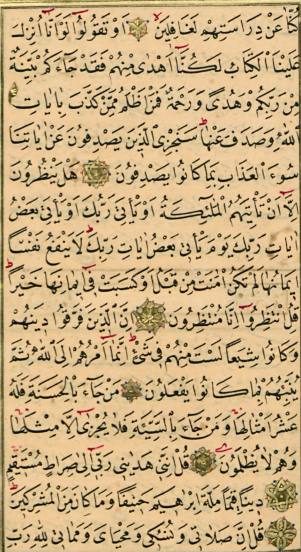 كنا عن دراستهم لغافلين او تقولوا لو انا انزل
علينا الكتاب لكنا اهدى منهم فقد جاءكم بينة
من ربكم وهدى ورحمة فمن اظلم ممن كذب بايات
الله وصدف عنها سنجزى الذين يصدفون عن اياتنا
سوء العذاب بما كانوا يصدفون هل ينظرون
الا ان تأتيهم الملئكة او يأتى ربك او يأتى بعض
ايات ربك يوم يأتى بعض ايات ربك لا ينفع نفسا
ايمانها لم تكن امنت من قبل او كسبت فى ايمانها خيرا
قل انتظروا انا منتظرون ان الذين فرقوا دينهم
وكانوا شيعا لست منهم فى شئ انما امرهم الى الله ثم
ينبئهم بما كانوا يفعلون من جاء بالحسنة فله
عشر امثالها ومن جاء بالسيئة فلا يجزى الا مثلها
وهم لا يظلمون قل اننى هدينى ربى الى صراط مستقيم
دينا قيما ملة ابرهيم حنيفا وما كان من المشركين
قل ان صلاتى ونسكى ومحياى ومماتى لله رب